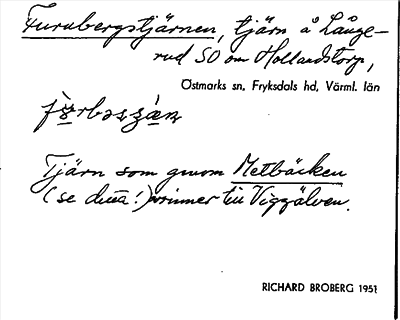 Furubergstjärnen, tjärn å Långe-
rud SO om Hollandstorp,
Östmarks sn, Fryksdals hd, Värml. län
Tjärn som genom Metbäcken
(se detta!) rinner till Viggälven.
RICHARD BROBERG 1951